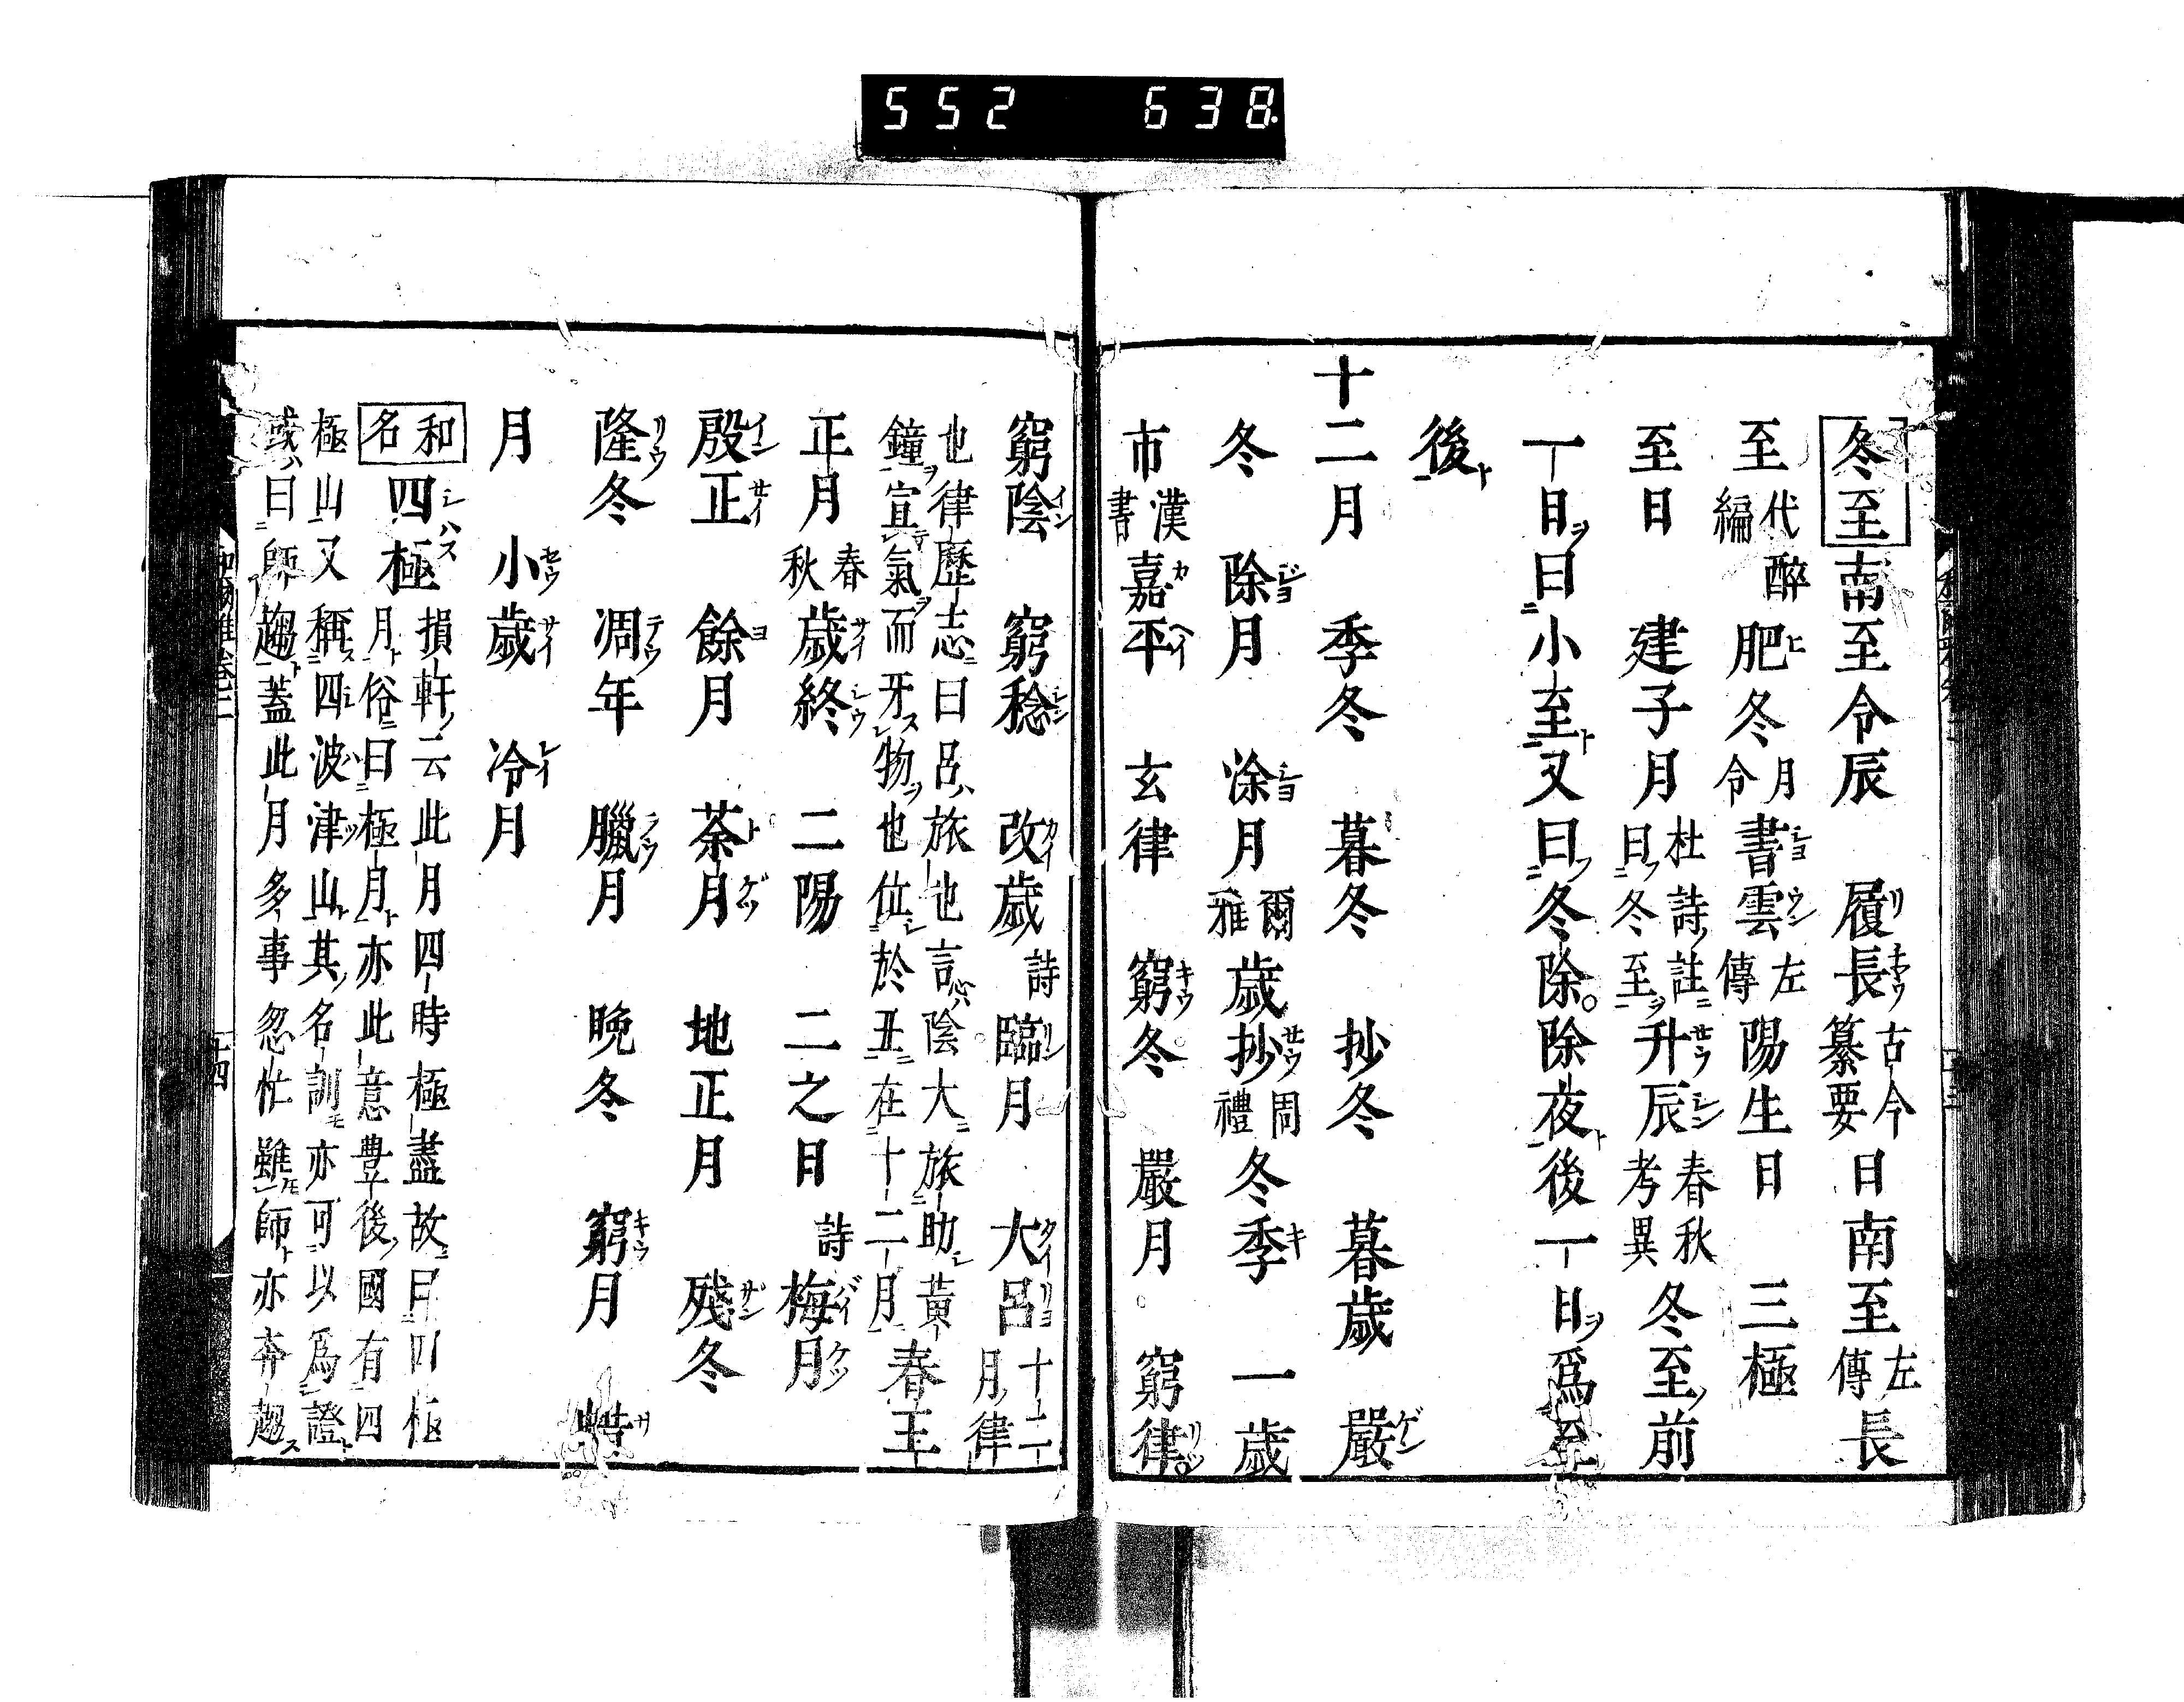 552 638.
冬至南至令辰 履長古今纂要日南至左傳長
至代醉編肥冬月令書雲左傳陽生日 三極
至日 建子月杜詩註曰冬至升辰春秋考異冬至前
一日曰小至又曰冬除。除夜後一日爲至
後
十二月 季冬 暮冬 抄冬 暮歲 嚴
冬 除月 涂月爾雅歲抄周禮冬季 一歲
市漢書嘉平 玄律 窮冬 嚴月 窮律
窮陰 窮稔 改歲詩臨月 大呂十二月律
也律歷志曰呂旅也言陰大旅助黃
鐘宣氣而牙物也位於丑在十二月春王
正月春秋歲終 二陽 二之日詩梅月
殷正 餘月 荼月 地正月 殘冬
隆冬 凋年 臘月 晩冬 窮月
月 小歲 冷月
和名四極損軒云此月四時極盡故曰四極
月俗曰極月亦此意豊後國有四
極山又稱四波津山其名訓亦可以爲證
或曰師趨蓋此月多事忽忙雖師亦奔趨